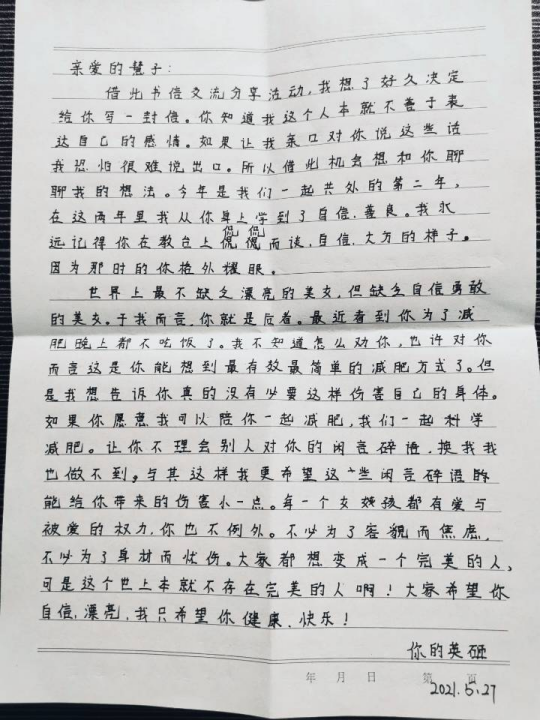 亲爱的慧子：
借此书信交流分享活动，我想了好久决定
给你写一封信。你知道我这个人本就不善于表
达自己的感情。如果让我亲口对你说这些话
我恐怕很难说出口。所以借此机会想和你聊
聊我的想法。今年是我们一起共处的第二年，
在这两年里我从你身上学到了自信、善良。我永
侃侃
远记得你在教台上傀傀而谈，自信、大方的样子。
因为那时的你格外耀眼。
世界上最不缺乏漂亮的美女，但缺乏自信勇敢
的美女。于我而言，你就是后者。最近看到你为了减
肥晚上都不吃饭了。我不知道怎么劝你，也许对你
而言这是你能想到最有效最简单的减肥方式了。但
是我想告诉你真的没有必要这样伤害自己的身体。
如果你愿意我可以陪你一起减肥，我们一起科学
减肥。让你不理会别人对你的闲言碎语，换我我
也做不到。与其这样我更希望这些闲言碎语
能给你带来的伤害小一点。每一个女孩都有爱与
被爱的权力，你也不例外。不必为了容貌而焦虑，
不必为了身材而忧伤。大家都想变成一个完美的人，
可是这个世上本就不存在完美的人啊！大家希望你
自信，漂亮，我只希望你健康、快乐！
你的英砸
年 月 日 第 页
2021.5.27